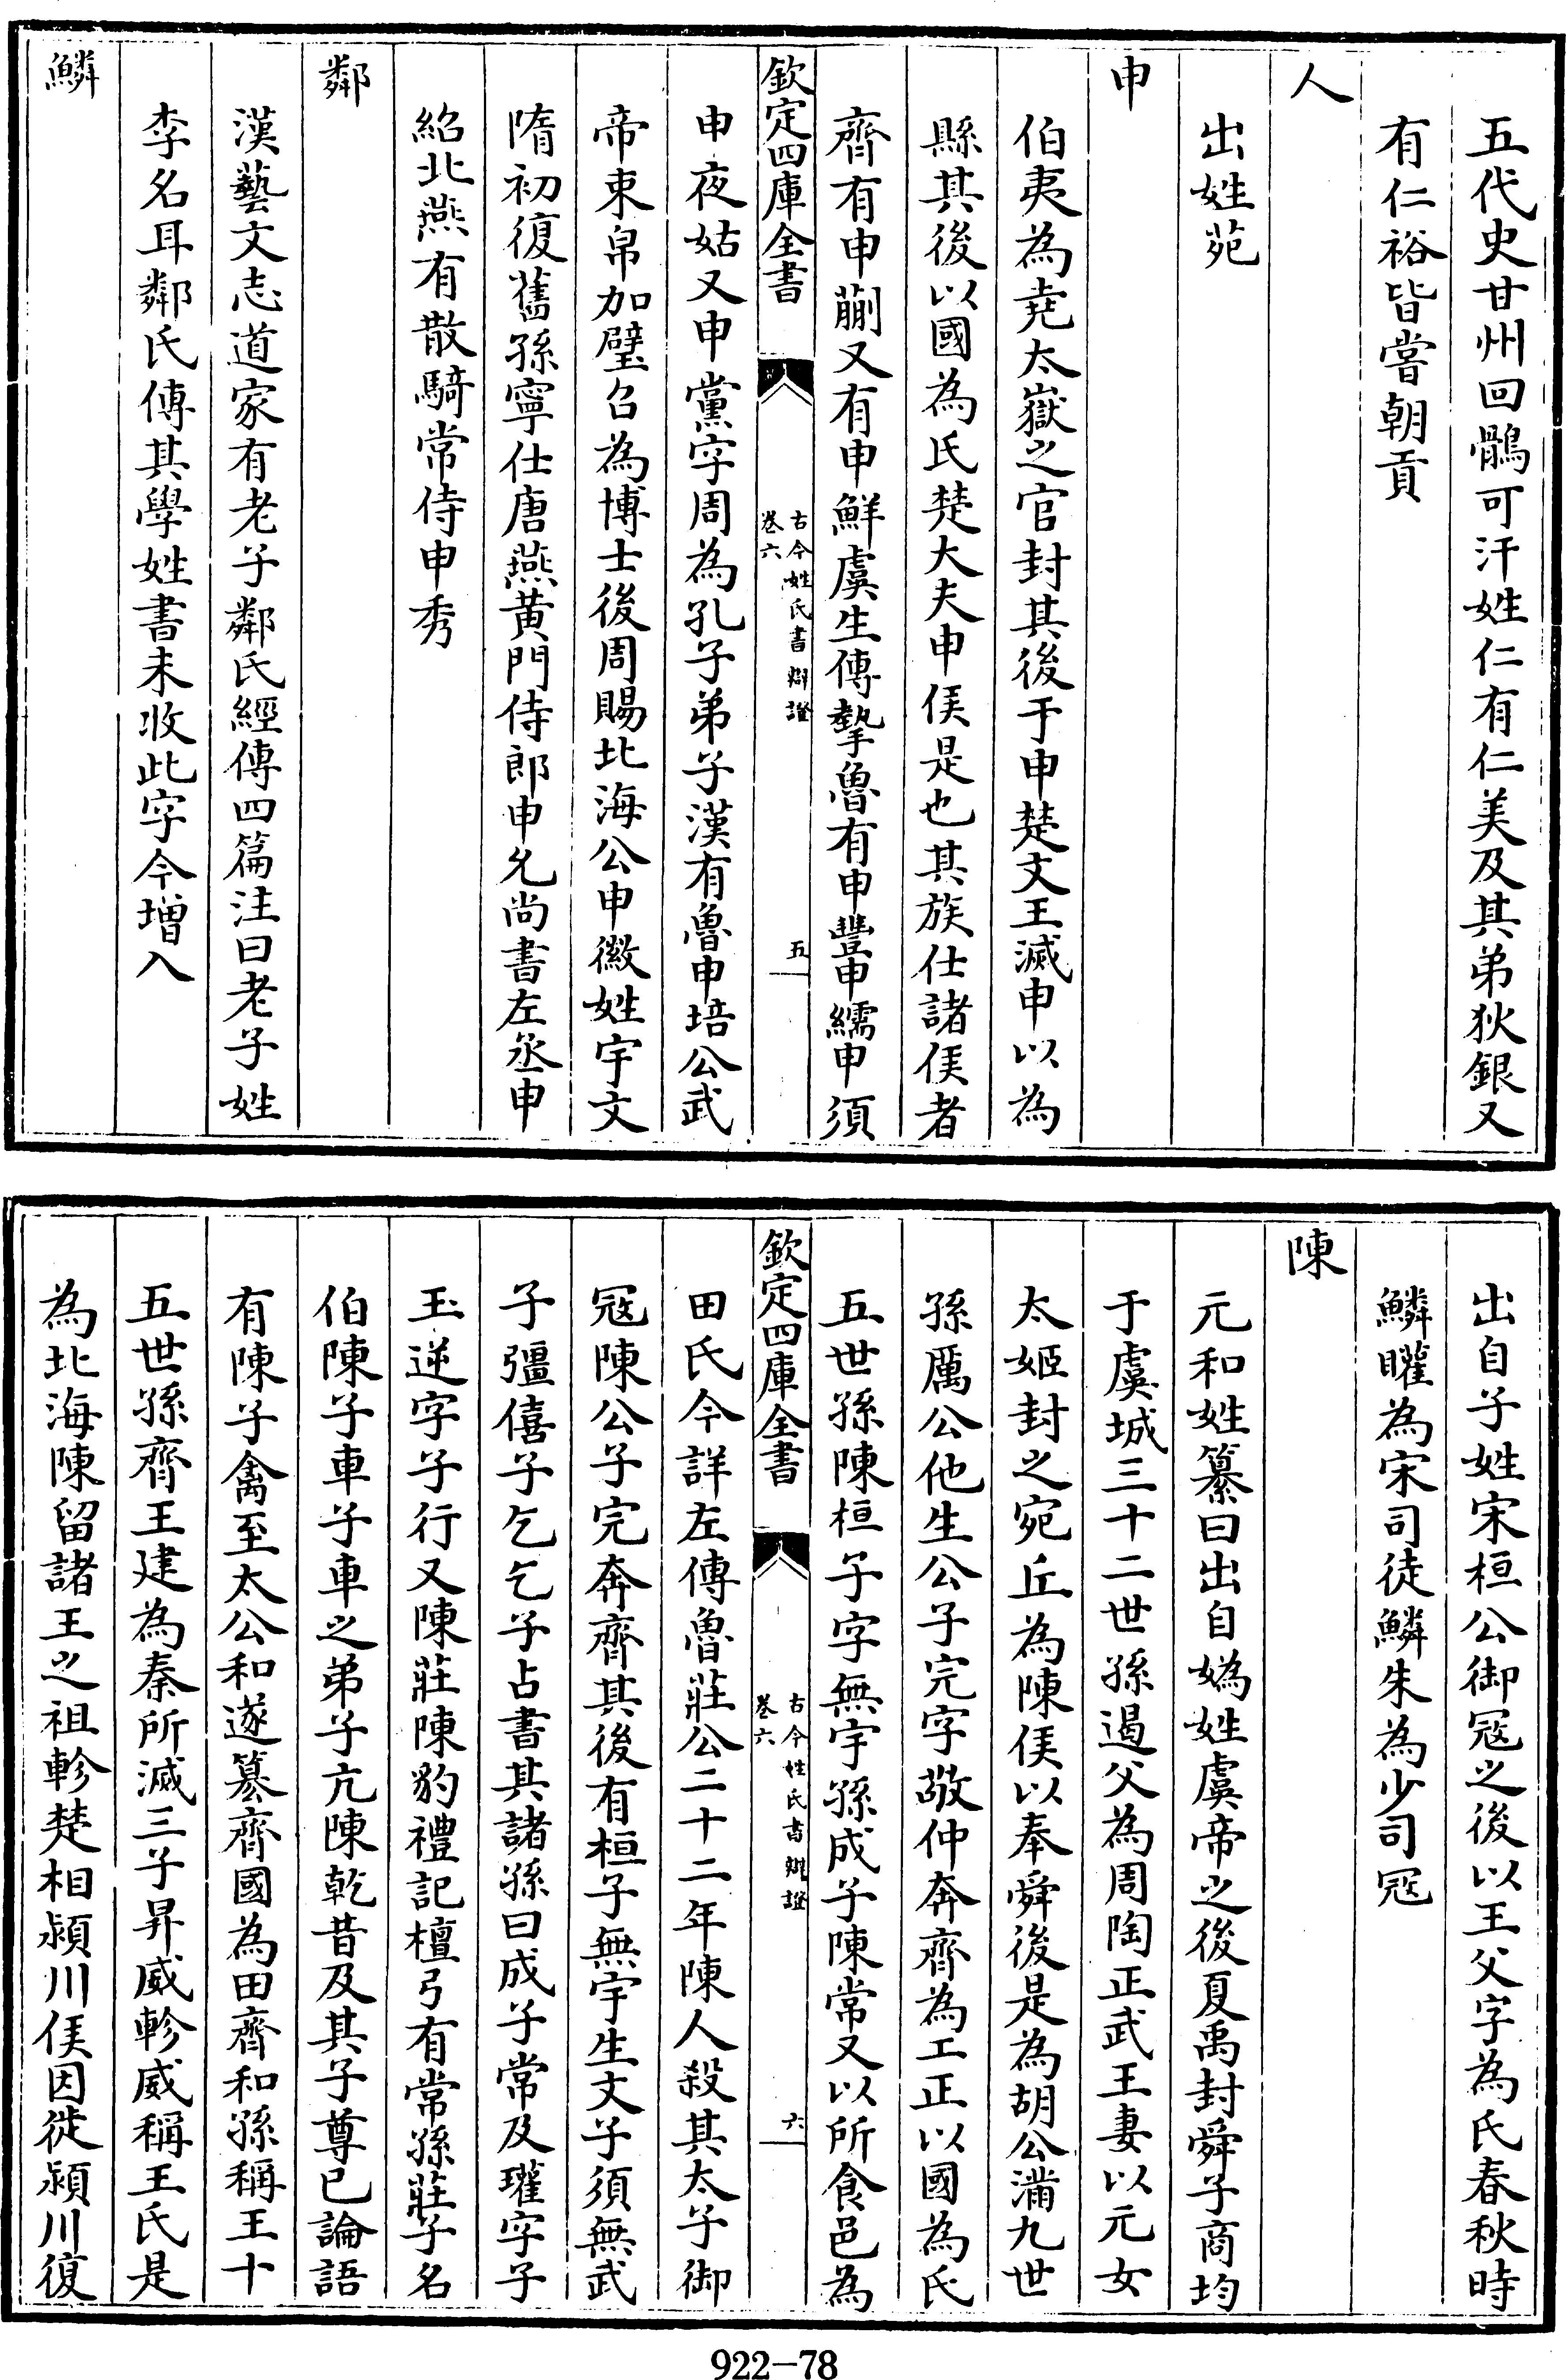 五代史甘州回鶻可汗姓仁有仁美及其弟狄銀又
有仁裕皆嘗朝貢
人
出姓苑
申
伯夷為堯太嶽之官封其後于申楚文王滅申以為
縣其後以國為氏楚大夫申侯是也其族仕諸侯者
齊有申蒯又有申鮮虞生傅摯魯有申豐申繻申須
欽定四庫全書
古今姓氏書辯證
卷六
五
申夜姑又申黨字周為孔子弟子漢有魯申培公武
帝束帛加璧召為博士後周賜北海公申徽姓宇文
隋初復舊孫寧仕唐燕黄門侍郎申允尚書左丞申
紹北燕有散騎常侍申秀
鄰
漢藝文志道家有老子鄰氏經傳四篇注曰老子姓
李名耳鄰氏傳其學姓書未收此字今增入
鱗
出自子姓宋桓公御寇之後以王父字為氏春秋時
鱗矔為宋司徒鱗朱為少司冦
陳
元和姓纂曰出自媯姓虞帝之後夏禹封舜子商均
于虞城三十二世孫遏父為周陶正武王妻以元女
太姬封之宛丘為陳侯以奉舜後是為胡公滿九世
孫厲公他生公子完字敬仲奔齊為工正以國為氏
五世孫陳桓子字無宇孫成子陳常又以所食邑為
欽定四庫全書
古今姓氏書辯證
卷六
六
田氏今詳左傳魯莊公二十二年陳人殺其太子御
冦陳公子完奔齊其後有桓子無宇生文子須無武
子彊僖子乞乞子占書其諸孫曰成子常及瓘字子
玉逆字子行又陳莊陳豹禮記檀弓有常孫莊子名
伯陳子車子車之弟子亢陳乾昔及其子尊已論語
有陳子禽至太公和遂簒齊國為田齊和孫稱王十
五世孫齊王建為秦所滅三子昇威軫威稱王氏是
為北海陳留諸王之祖軫楚相潁川侯因徙潁川復
922-78